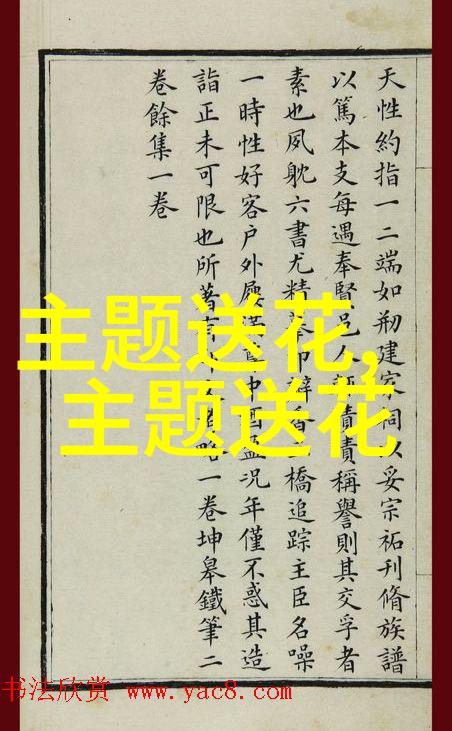 天性約指一二端如剏建家祠以妥宗祏刊脩族譜
以篤本支每遇奉賢邑人責責稱譽則其交孚者
素也夙躭六書尤精橋追踪主臣名噪
一時性好客户外屨況年僅不惑其造
詣正未可限也所著有略一卷坤皋鐵筆二
卷餘集一卷
主题送花,
主题送花
书法欣赏 www.yac8.com